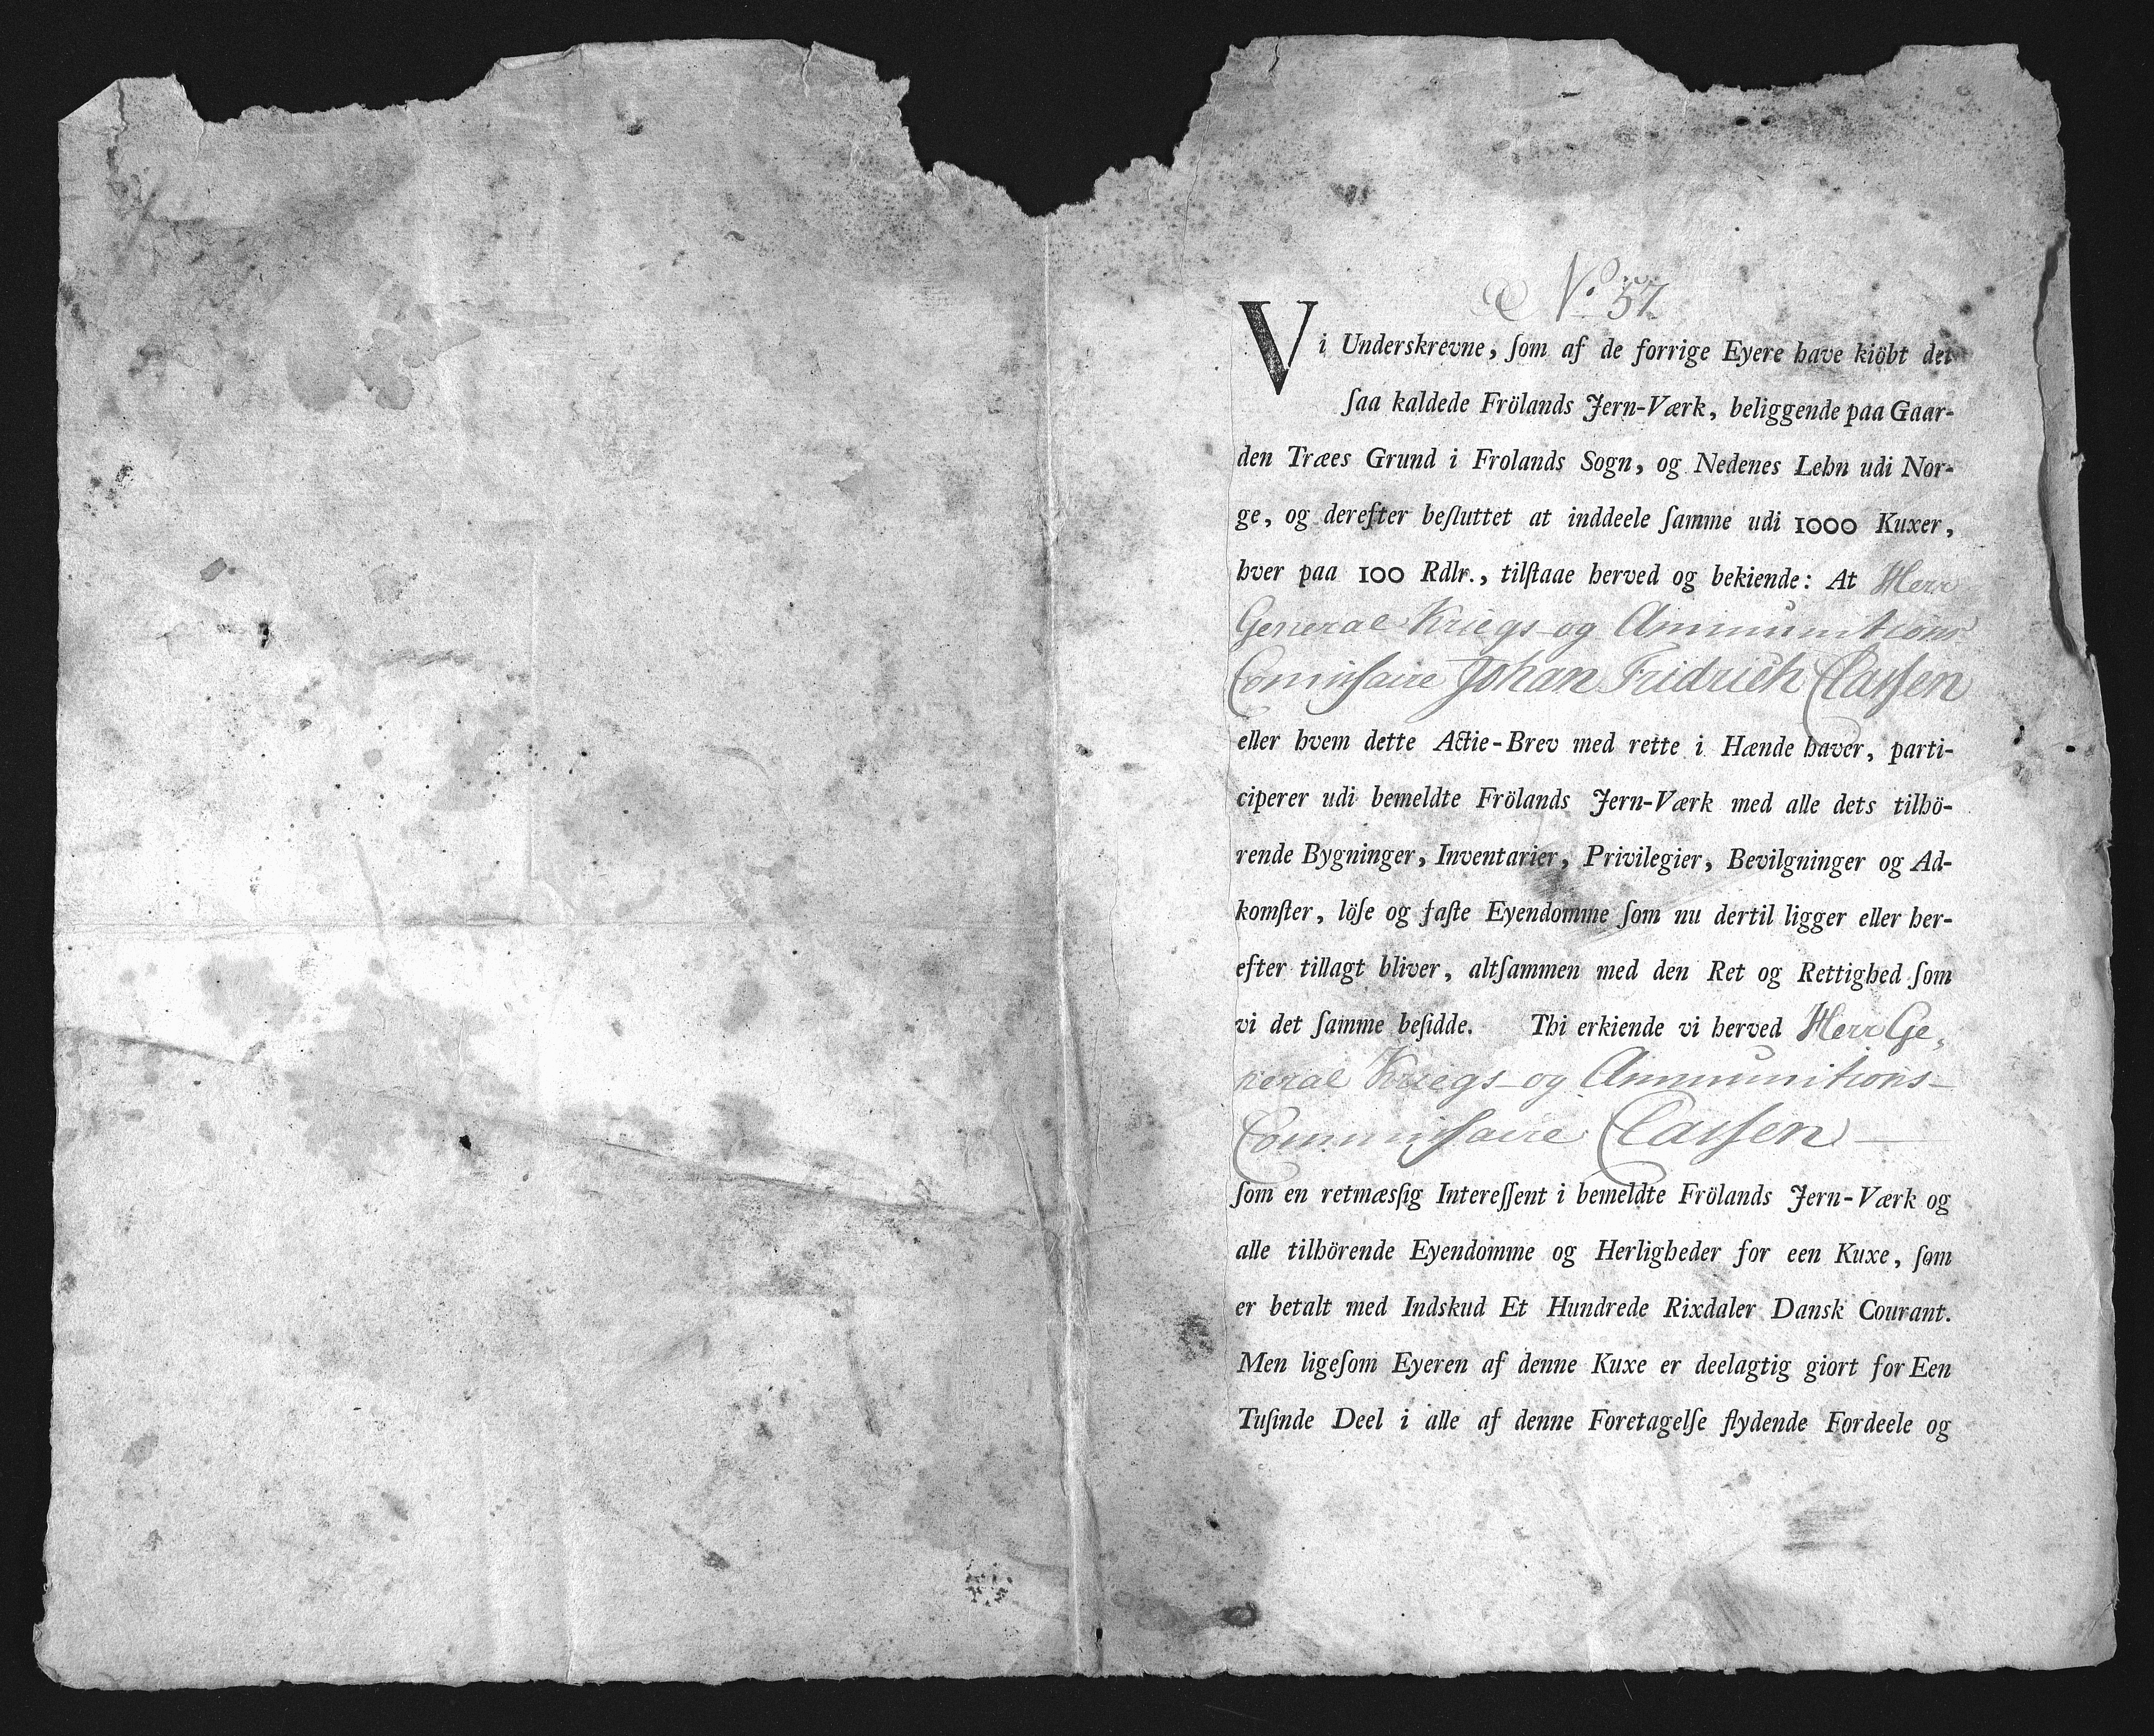 No. 57.
Vi Underskrevne, ſom af de forrige Eyere have kiöbt det
ſaa kaldede Frölands Jern-Værk, beliggende paa Gaar-
den Træes Grund i Frolands Sogn, og Nedenes Lehn udi Nor-
ge, og derefter beſluttet at inddeele ſamme udi 1000 Kuxer,
hver paa 100 Rdlr., tilſtaae herved og bekiende: At Herr
General Kriegs og Ammunitions
Commiſsaire Johan Fridrich Claſsen
eller hvem dette Actie-Brev med rette i Hænde haver, parti-
ciperer udi bemeldte Frölands Jern-Værk med alle dets tilhö-
rende Bygninger, Inventarier, Privilegier, Bevilgninger og Ad-
komſter, löſe og faſte Eyendomme ſom nu dertil ligger eller her-
efter tillagt bliver, altſammen med den Ret og Rettighed ſom
vi det ſamme beſidde. Thi erkiende vi herved Herr Ge,
neral Kriegs og Ammunitions-
Commiſsaire Claſsen
ſom en retmæsſig Intereſſent i bemeldte Frölands Jern-Værk og
alle tilhörende Eyendomme og Herligheder for een Kuxe, ſom
er betalt med Indskud Et Hundrede Rixdaler Dansk Courant.
Men ligeſom Eyeren af denne Kuxe er deelagtig giort for Een
Tuſinde Deel i alle af denne Foretagelſe flydende Fordeele og